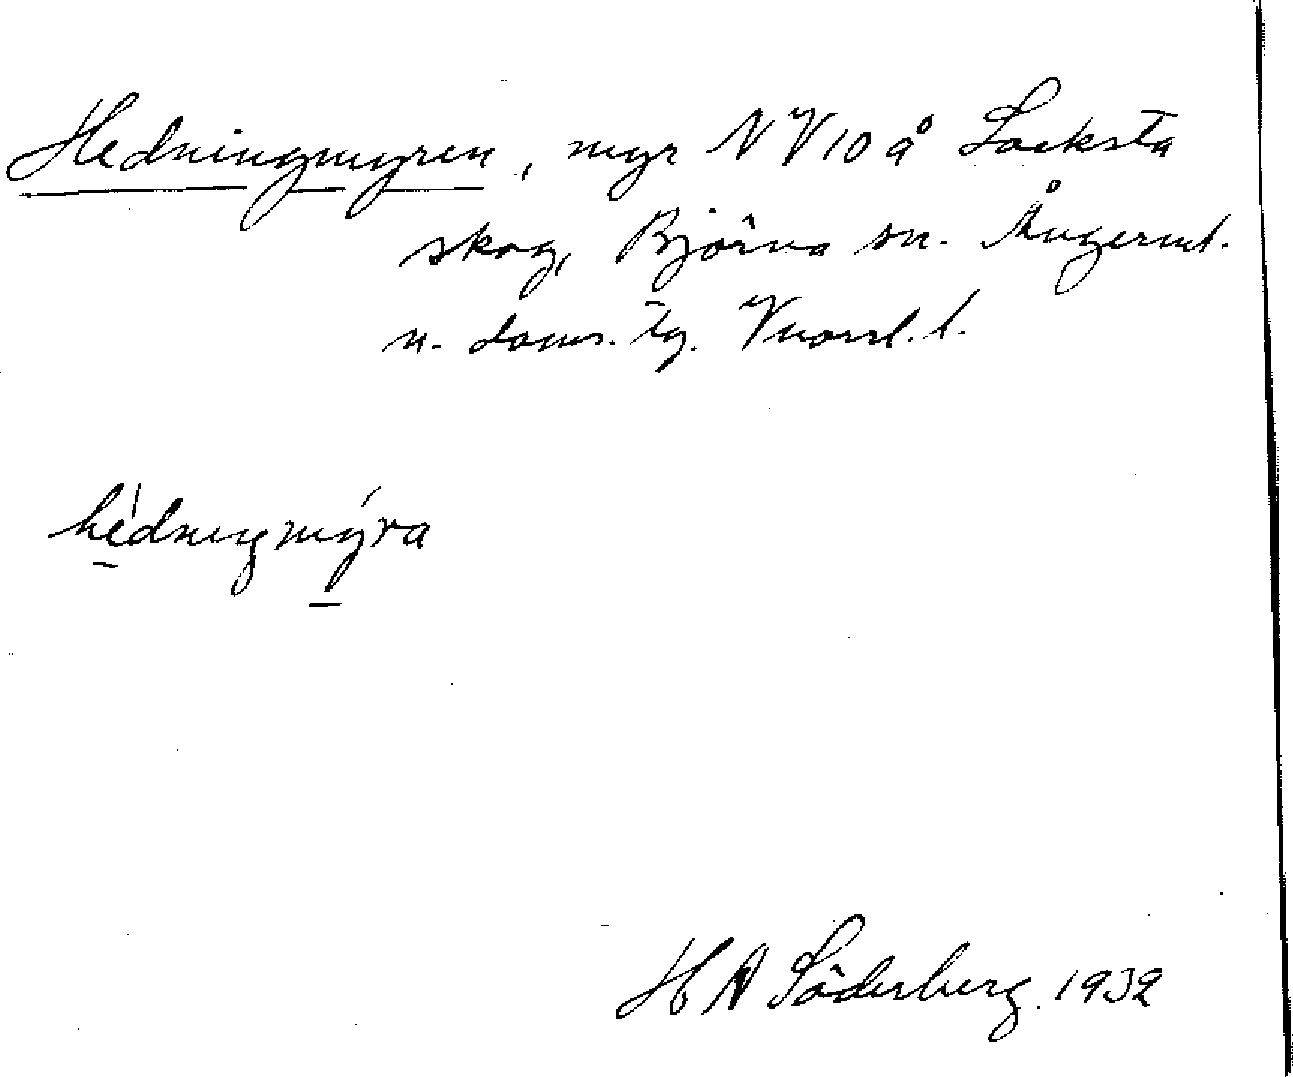 Hedningmyren, myr NV 10 å Locksta
skog, Björna sn. Ångerml.
n. doms. tg. Vnorrl. l.
hédningmýra
H A Söderberg. 1932